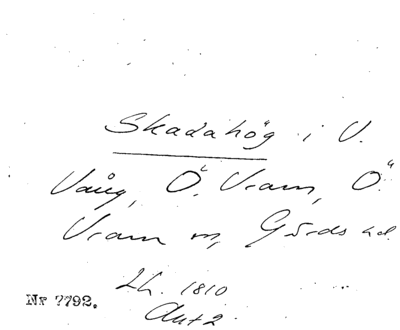 Skadahög i V.
Vång, Ö. Vram, Ö.
Vram sn, Gärds hd.
Lh. 1810
Akt 2
Nr 7792.